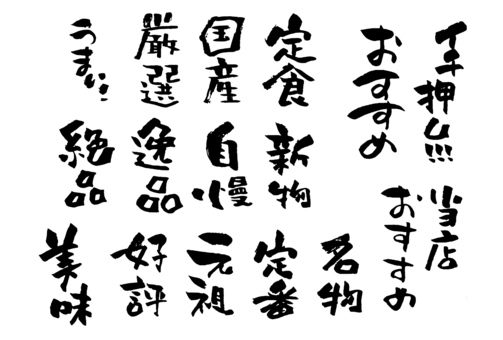 イチ押し!!!
おすすめ
定食
国産
厳選
うまい!
当店
おすすめ
新物
自慢
逸品
絶品
名物
定番
元祖
好評
美味